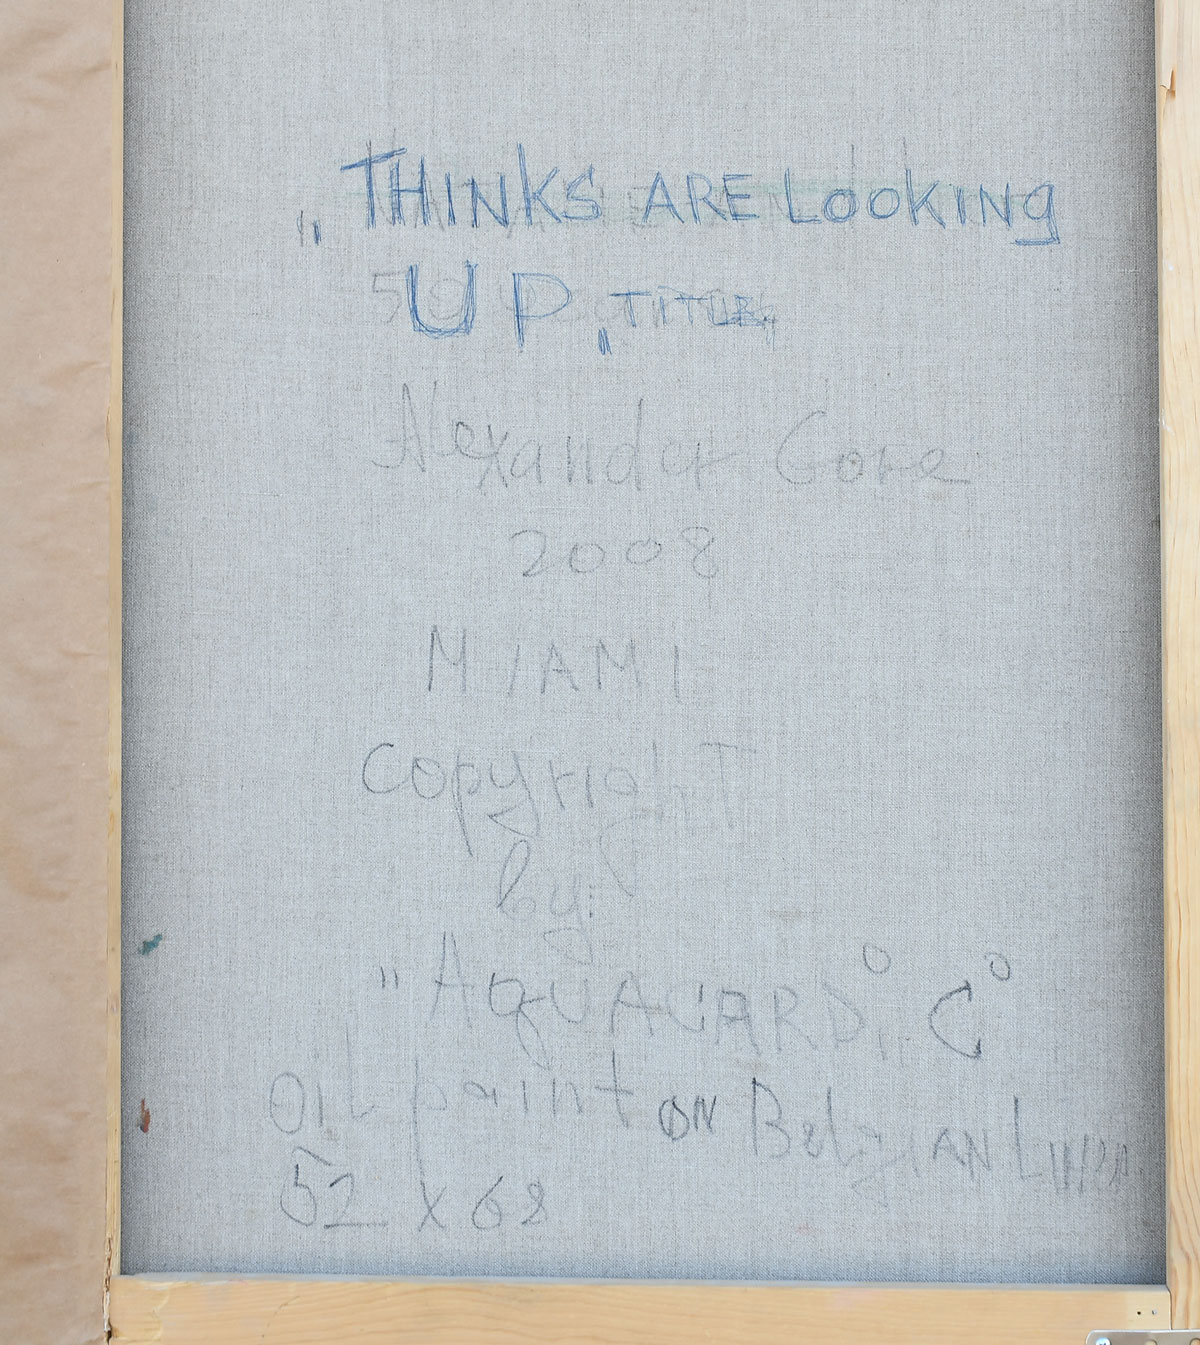 „THINKS ARE LOOKING
UP„ TITLE
Alexander Gore
2008
MIAMI
CopyrighT
by:
"AquACARD„ C°
OIL paint ON BelgIAN LINEN
52 x 68